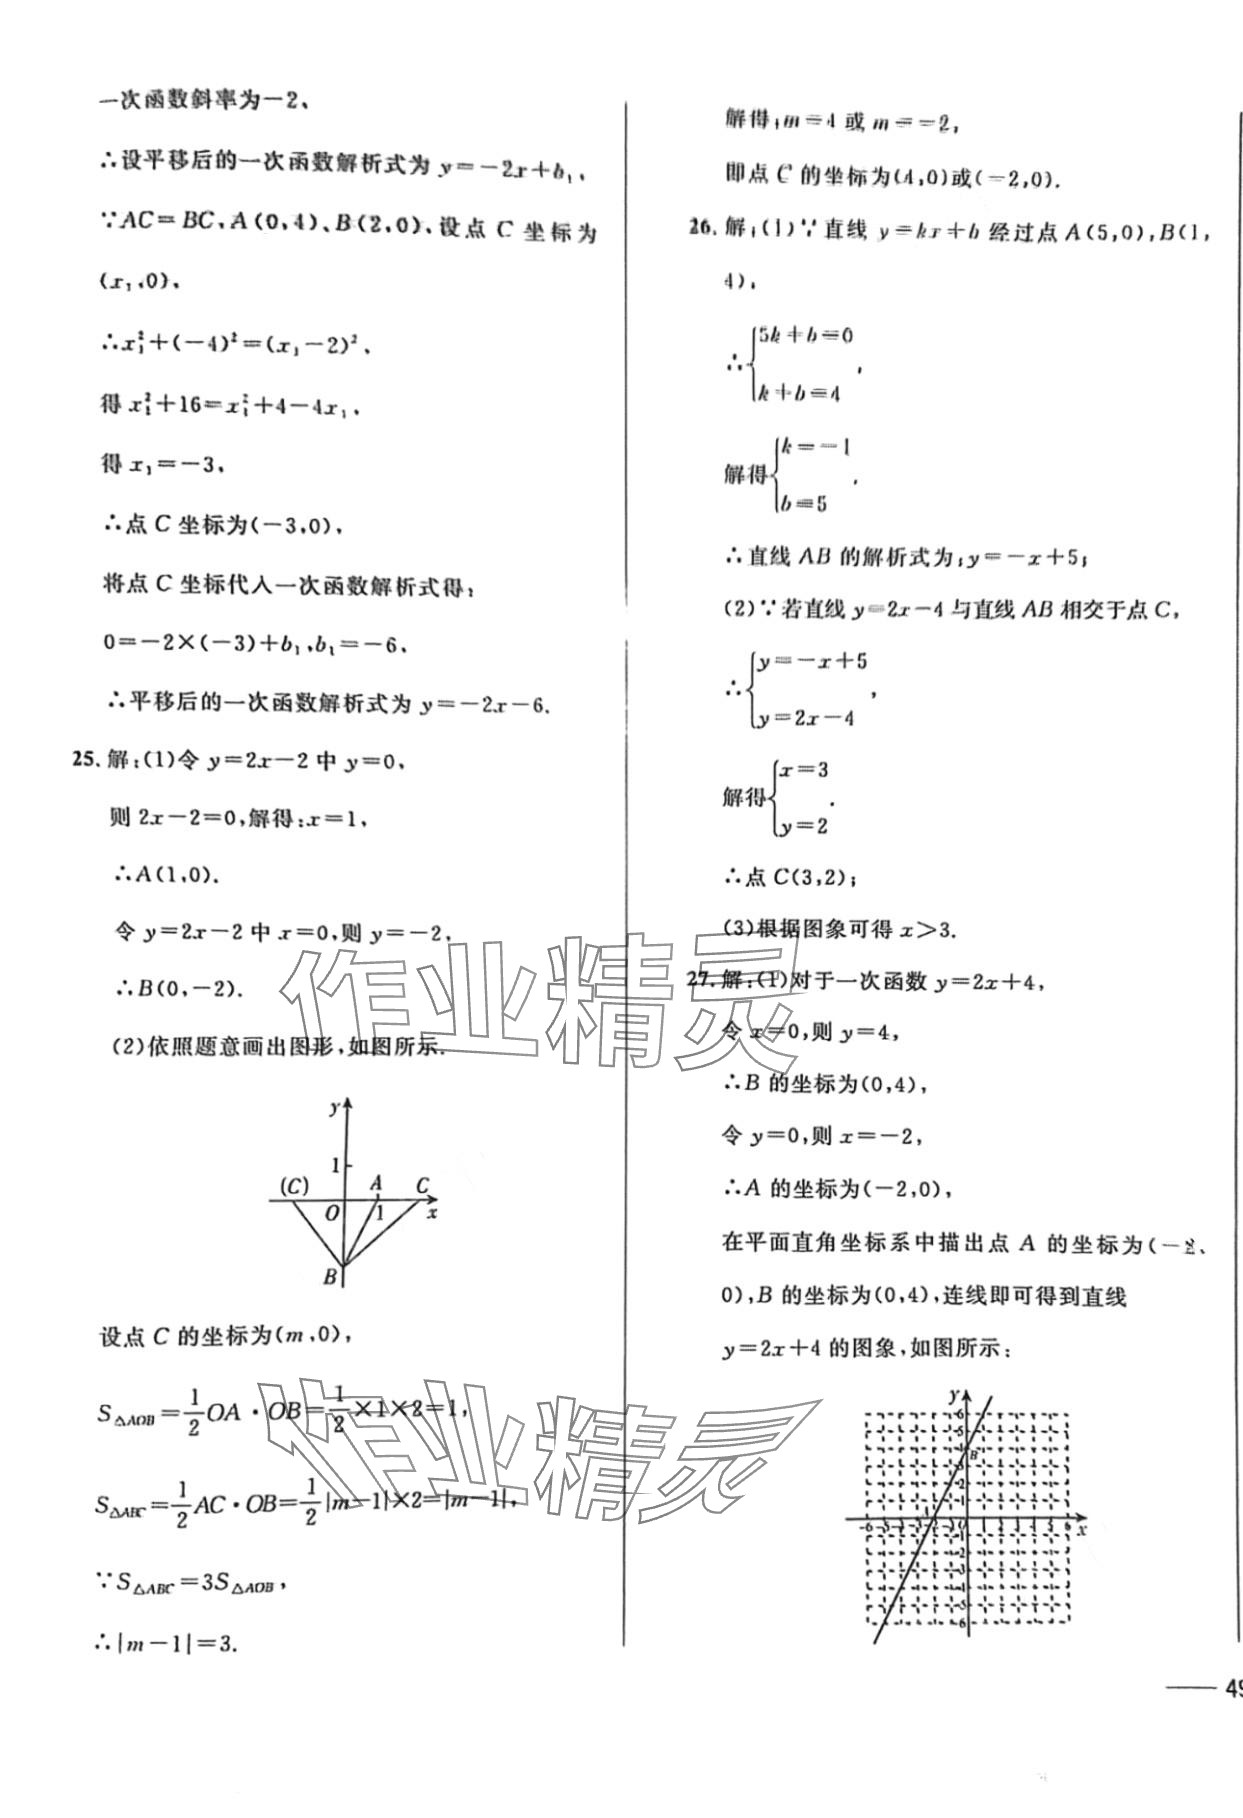 一次函数斜率为－2，
∴设平移后的一次函数解析式为 y＝－2x＋b₁，
∵AC＝BC，A(0,4)、B(2,0)，设点 C 坐标为
(x₁,0)，
∴x₁²＋(－4)²＝(x₁－2)²，
得 x₁²＋16＝x₁²＋4－4x₁，
得 x₁＝－3，
∴点 C 坐标为(－3,0)，
将点 C 坐标代入一次函数解析式得：
0＝－2×(－3)＋b₁，b₁＝－6，
∴平移后的一次函数解析式为 y＝－2x－6.
25. 解：(1)令 y＝2x－2 中 y＝0，
则 2x－2＝0，解得：x＝1，
∴A(1,0).
令 y＝2x－2 中 x＝0，则 y＝－2，
∴B(0,－2).
(2)依照题意画出图形，如图所示.
y
1
(C) A C
O 1 x
B
设点 C 的坐标为(m,0)，
S△AOB＝1/2 OA·OB＝1/2×1×2＝1，
S△ABC＝1/2 AC·OB＝1/2|m－1|×2＝|m－1|，
∵S△ABC＝3S△AOB，
∴|m－1|＝3.
解得：m＝4 或 m＝－2，
即点 C 的坐标为(4,0)或(－2,0).
26. 解：(1)∵直线 y＝kx＋b 经过点 A(5,0)，B(1,
4)，
∴{5k＋b＝0
k＋b＝4，
解得{k＝－1
b＝5，
∴直线 AB 的解析式为：y＝－x＋5；
(2)∵若直线 y＝2x－4 与直线 AB 相交于点 C，
∴{y＝－x＋5
y＝2x－4，
解得{x＝3
y＝2.
∴点 C(3,2)；
(3)根据图象可得 x＞3.
27. 解：(1)对于一次函数 y＝2x＋4，
令 x＝0，则 y＝4，
∴B 的坐标为(0,4)，
令 y＝0，则 x＝－2，
∴A 的坐标为(－2,0)，
在平面直角坐标系中描出点 A 的坐标为(－2,
0)，B 的坐标为(0,4)，连线即可得到直线
y＝2x＋4 的图象，如图所示：
y
6
5
4
B
3
2
1
A
-6 -5 -4 -3 -2 -1 O 1 2 3 4 5 6 x
-1
-2
-3
-4
-5
-6
作业精灵
作业精灵
49